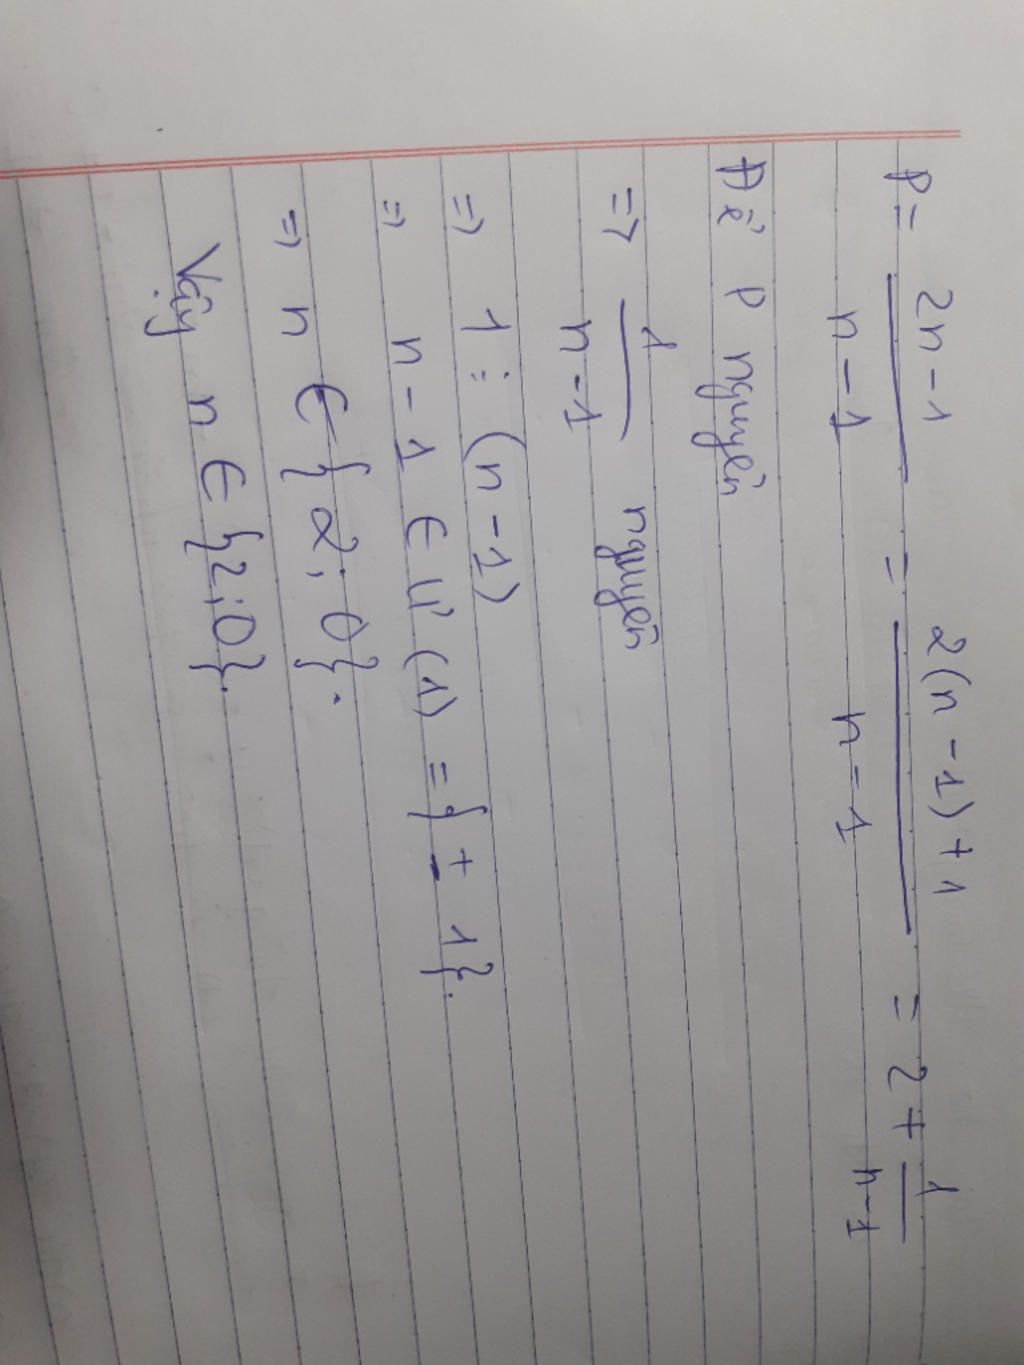 P = \frac{2n-1}{n-1} = \frac{2(n-1)+1}{n-1} = 2 + \frac{1}{n-1}
Để P nguyên
=> \frac{1}{n-1} nguyên
=> 1 ⋮ (n-1)
=> n-1 ∈ Ư(1) = {± 1}.
=> n ∈ {2; 0}.
Vậy n ∈ {2; 0}.